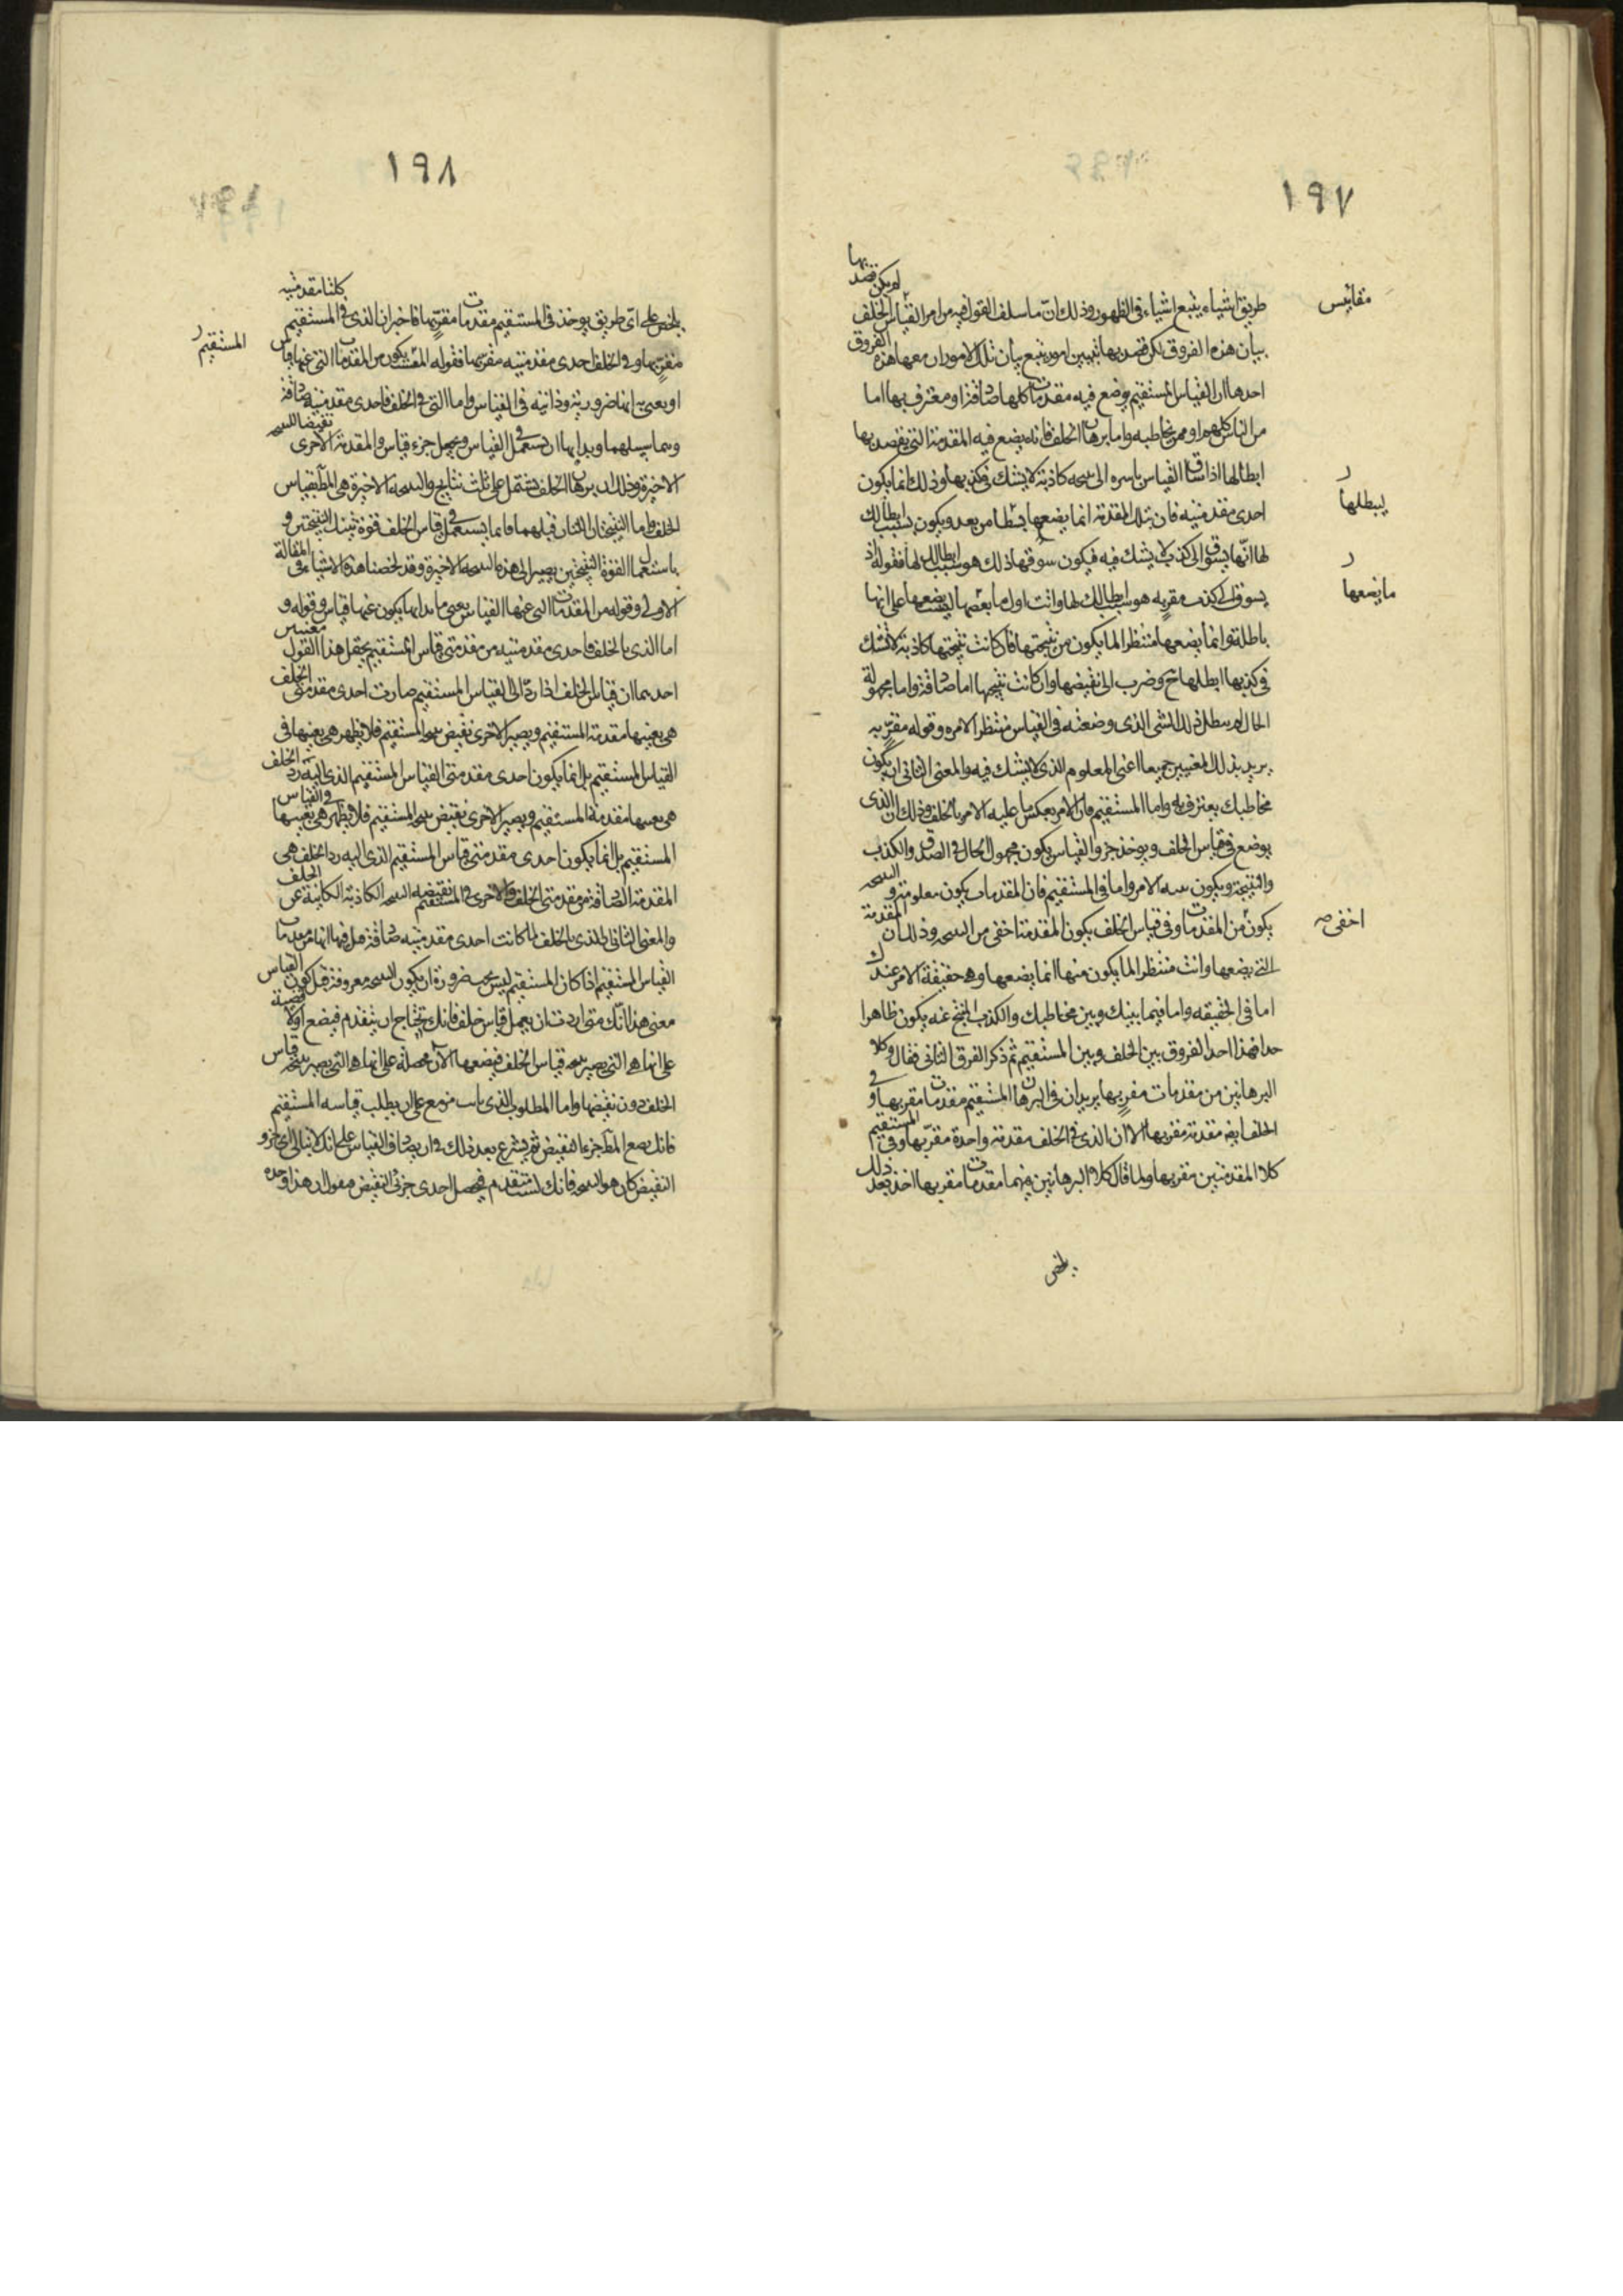 ١٩٧
طريق اشياء يتبع اشياء في الظهور وذلك ان ما سلف القول فيه من امر القياس الخلف لم يكن قصد بها
مقاييس
بيان هذه الفروق لكن قصد بها تبيين امور يتبع بيان تلك الامور ان معها هذه الفروق
احدها ان القياس المستقيم يوضع فيه مقدمات كلها صادقة او معترف بها اما
من الناس كلهم او ممن يخاطبه واما برهان الخلف فانه يضع فيه المقدمة التي يقصد بها
ابطالها اذا ساق القياس باسره الى نتيجه كاذبة لا يشك في كذبها وذلك انما يكون
احدى مقدمتيه فان تلك المقدمة انما يضعها من بعد ويكون سبب ابطالك
ليبطلها
لها انها يسوق الى كذب لا يشك فيه فيكون سوقها ذلك هو سبب ابطالك لها فقوله اذ
يسوق الى كذب مقر به هو سبب ابطالك لها وانت اول ما بعضها ليست يضعها على انها
ما يضعها
باطلة وانما يضعها منتظرا لما يكون من نتيجتها فان كانت نتيجتها كاذبة لا تشك
في كذبها ابطلها ح وضرب الى نقيضها وان كانت نتيجتها اما صادقة واما مجهولة
الحال لم يبطل ذلك الشي الذي وضعته في القياس منتظرا لامره وقوله مقر به
يريد بذلك المعنيين جميعا اعني المعلوم الذي لا يشك فيه والمعنى الثاني ان يكون
مخاطبك يعترف به واما المستقيم فان الامر بعكس ما عليه الامر بالخلف وذلك ان الذي
يوضع في قياس الخلف ويوخذ جزو القياس يكون مجهول الحال في الصدق والكذب
والنتيجة ويكون الامر واما في المستقيم فان المقدمات يكون معلومة والنتيجه
يكون من المقدمات وفي قياس الخلف يكون المقدمة اخفى من النتيجه وذلك ان المقدمة
اخفى صه
التي يضعها وانت منتظر لما يكون منها انما يضعها وهي حقيقة الامر عندك
اما في الحقيقه واما فيما بينك وبين مخاطبك والكذب المنتج عنه يكون ظاهرا
حدا فهذا احد الفروق بين الخلف وبين المستقيم ثم ذكر الفرق الثاني فقال وكلا
البرهانين من مقدمات مقر بها يريد ان في البرهان المستقيم مقدمات مقر بها وفي
الخلف ايضه مقدمة مقر بها الا ان الذي في الخلف مقدمة واحدة مقر بها وفي المستقيم
كلا المقدمتين مقر بها ولما قال كلا البرهانين فيهما مقدمات مقر بها اخذ بعد ذلك
يلخص
١٩٨
يلخص على اي طريق يوخذ في المستقيم مقدمات مقر بها فاخبر ان الذي في المستقيم كلتا مقدمتيه
المستقيم
مقر بها وفي الخلف احدى مقدمتيه مقر بها فقوله المستقيم يكون من المقدمات التي عنها قياس
او يعني به انها ضرورية وذاتيه في القياس واما التي في الخلف فاحدى مقدمتيه صادقة
وبما سبيلهما وبد ايها ان تستعمل في القياس وبجعل جزء قياس والمقدمة الاخرى نقيضا للنتيجه
الاخيرة وذلك ان برهان الخلف يشتمل على ثلث نتايج والنتيجه الاخيرة هي المط بقياس
الخلف واما النتيجتان اللتان قبلهما فانما يستعمل في قياس الخلف قوة تينك النتيجتين و
باستعمال القوة النتيجتين يصير الى هذه النتيجه الاخيرة وقد لخصنا هذه الاشياء في المقالة
الاولى وقوله من المقدمات التي عنها القياس يعني ما بدايها يكون عنها قياس وقوله و
اما الذي بالخلف فاحدى مقدمتيه من مقدمتي قياس المستقيم يحتمل هذا القول معنيين
احديهما ان قياس الخلف اذا رد الى القياس المستقيم صارت احدى مقدمتي الخلف
هي بعينها مقدمة المستقيم ويصير الاخرى نقيض نتيجه المستقيم فلا يظهر هي بعينها في
القياس المستقيم بل انما يكون احدى مقدمتي القياس المستقيم الذي اليه رد الخلف
هي بعينها مقدمة المستقيم ويصير الاخرى نقيض نتيجه المستقيم فلا يظهر هي بعينها في القياس
المستقيم بل انما يكون احدى مقدمتي قياس المستقيم الذي اليه رد الخلف هي
المقدمة الصادقة من مقدمتي الخلف والاخرى في المستقيم نقيضه النتيجه الكاذبة الكائنة عن الخلف
والمعنى الثاني الذي بالخلف لما كانت احدى مقدمتيه صادقة هل فيها انها من مقدمات
القياس المستقيم اذا كان المستقيم ليس يجب ضرورة ان يكون النتيجه معروفة قبل كون القياس
معنى هذا انك متى اردت ان يعمل قياس خلف فانك يحتاج ان يتقدم فيضع اولا قضية
على انها هي التي يصير نتيجه قياس الخلف فيضعها الان محصلة على انها هي التي يصير نتيجه قياس
الخلف دون نقيضها واما المطلوب الذي انت مزمع على ان يطلب قياسه المستقيم
فانك يضع المط جزءا النقيض ثم يشرع بعد ذلك في ان يصادف القياس على انك لا تبالي اي جزو
النقيض كان هو النتيجه فانك لست يتقدم فيحصل احدى جزئي النقيض فيقول ان هذا وحده